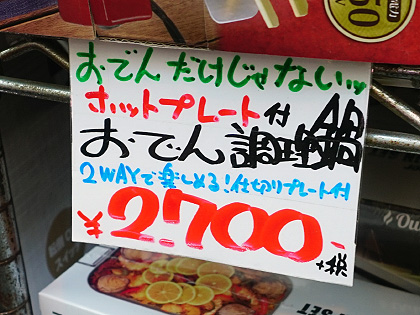 おでんだけじゃないッ
ホットプレート付
おでん調理鍋
2WAYで楽しめる!仕切りプレート付
¥2700-
+税